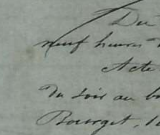 Du
neuf heures d
Acte
du soir au bo
Bourget,